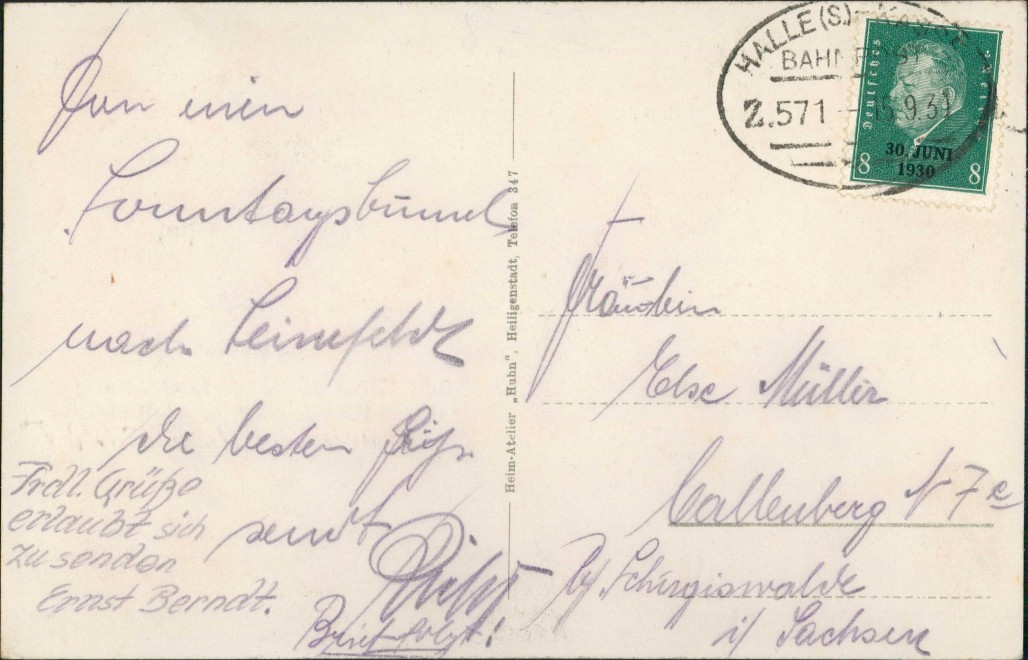 Von einem
Sonntagsbummel
nach Leinefelde
die besten Grüße
sendt
Brief folgt!
Frdl. Grüße
erlaubt sich
zu senden
Ernst Berndt.
Heim-Atelier „Huhn“, Heiligenstadt, Telefon 347
HALLE (S.) –
BAHNPOST
Z.571 15.9.30
Deutsches Reich
30. JUNI
1930
8 8
Fräulein
Else Müller
Callenberg N 7e
Schirgiswalde
i/ Sachsen